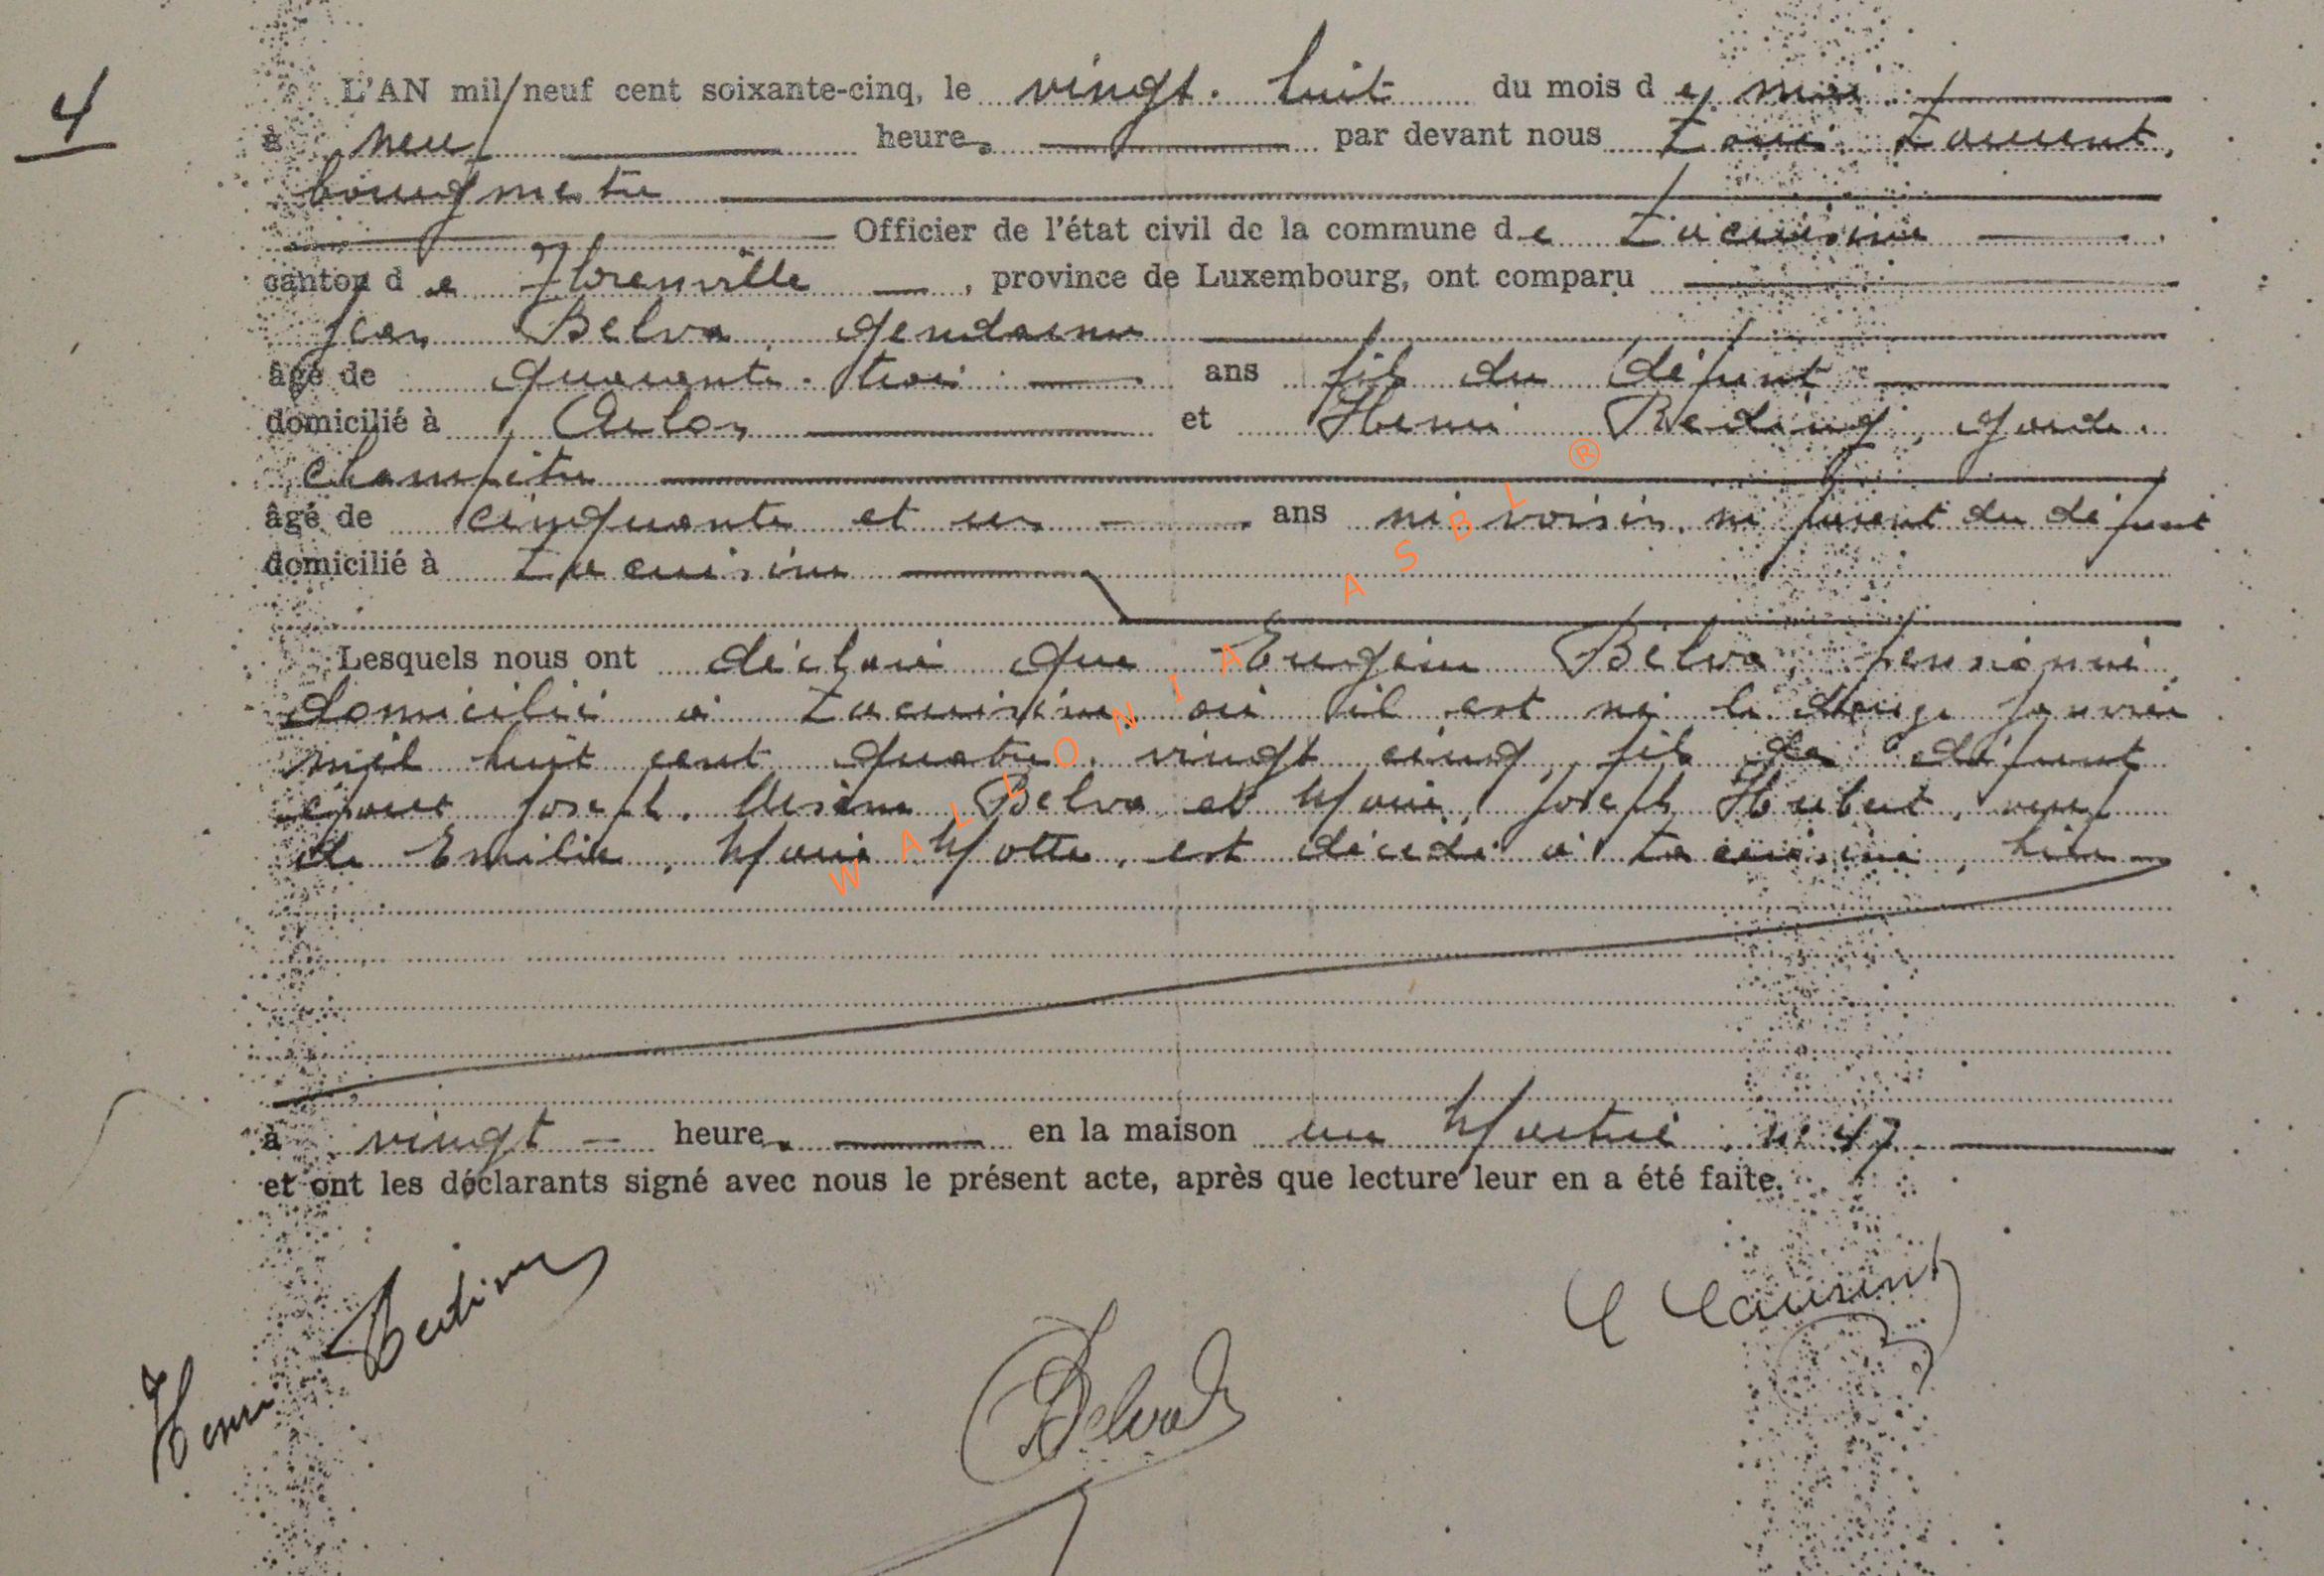 4
L'AN mil neuf cent soixante-cinq, le vingt-huit du mois de mai
à neuf heures par devant nous Louis Laurent,
bourgmestre
Officier de l'état civil de la commune de Lacuisine
canton de Florenville, province de Luxembourg, ont comparu
Jean Belva, gendarme
âgé de quarante-trois ans fils du défunt
domicilié à Arlon et Henri Reding, garde-
champêtre
âgé de cinquante et un ans ni voisin, ni parent du défunt
domicilié à Lacuisine
Lesquels nous ont déclaré que Eugène Belva, pensionné
domicilié à Lacuisine où il est né le douze janvier
mil huit cent quatre-vingt cinq, fils de défunt
époux Joseph Belva et Marie, Joseph Hubert, veuf
de Emilie, Marie Motte, est décédé à Lacuisine, hier
à vingt heures en la maison n° 47
et ont les déclarants signé avec nous le présent acte, après que lecture leur en a été faite.
Henri Reding
Belva
L Laurent
WALLONIA ASBL ®